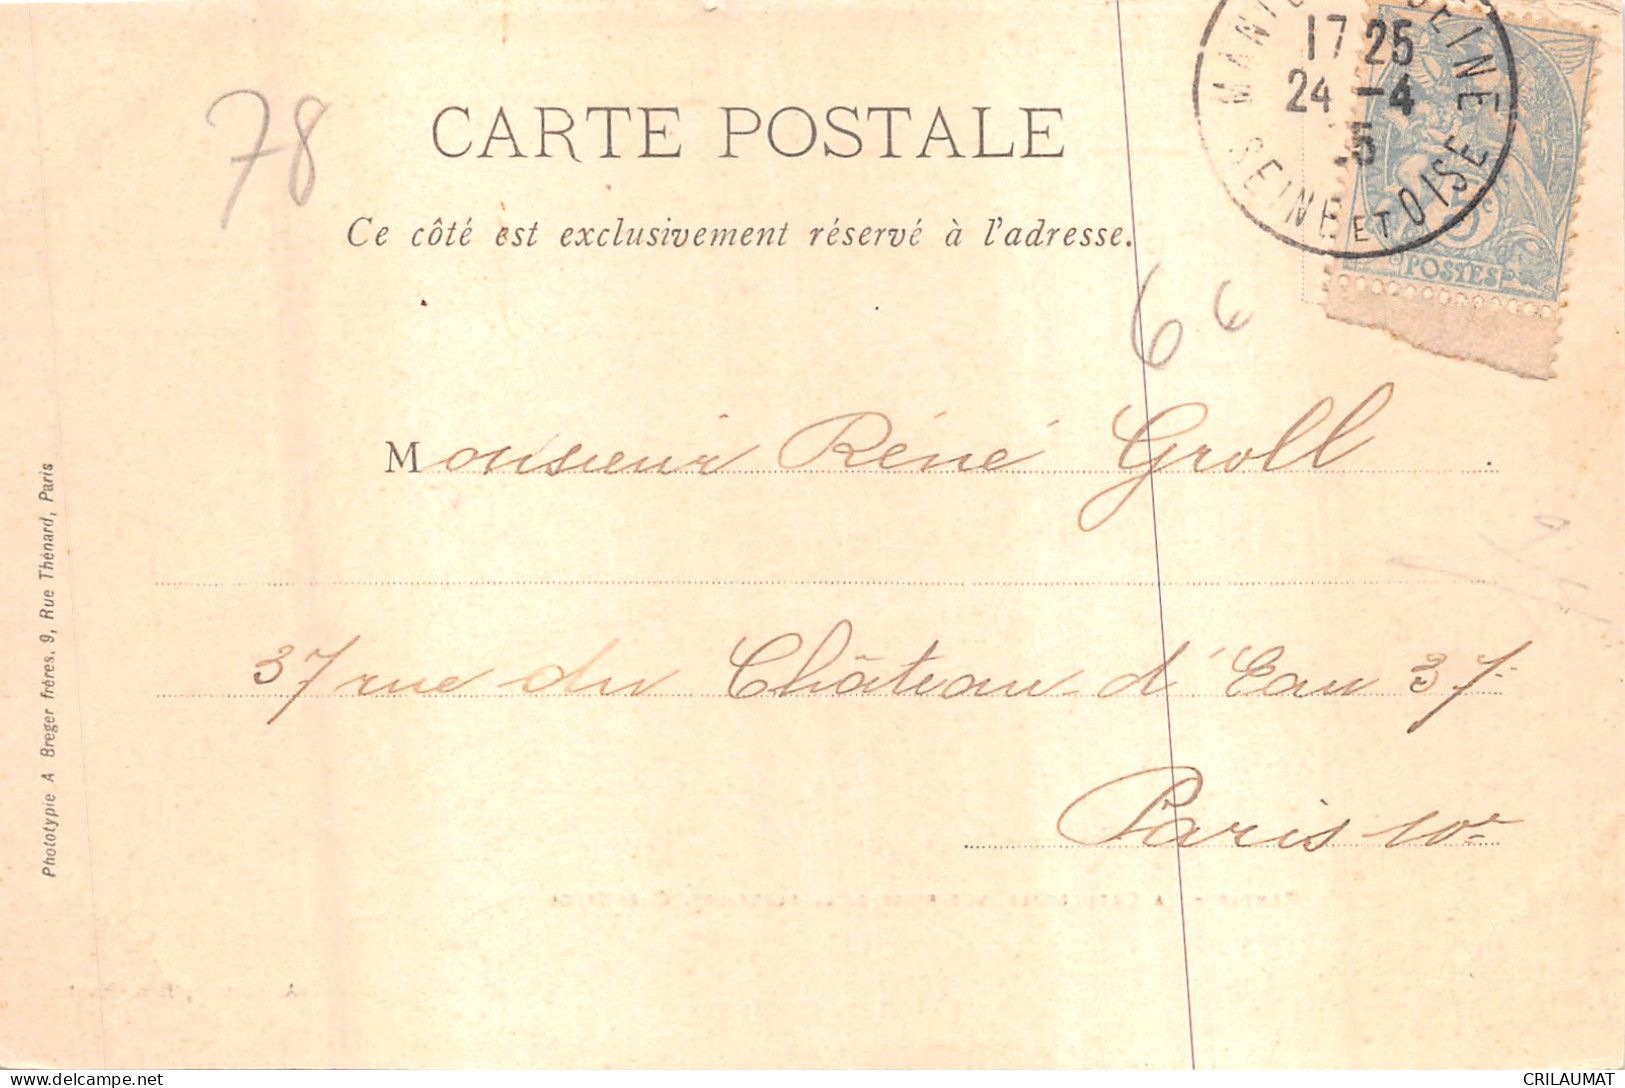 17 25
24 -4
-5
SEINE ET OISE
5c
POSTES
78
CARTE POSTALE
Ce côté est exclusivement réservé à l'adresse.
6 €
Monsieur Réné Groll
37 rue du Château d'Eau 37
Paris 10e
Phototypie A Breger frères. 9, Rue Thénard, Paris
delcampe.net
CRILAUMAT